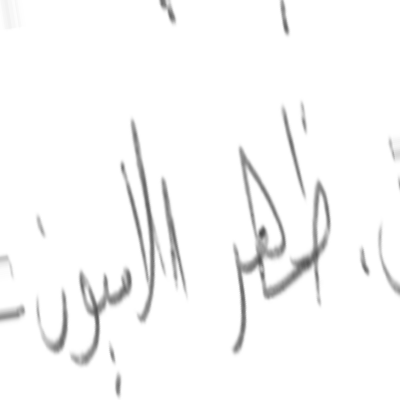 ظهر الاميون